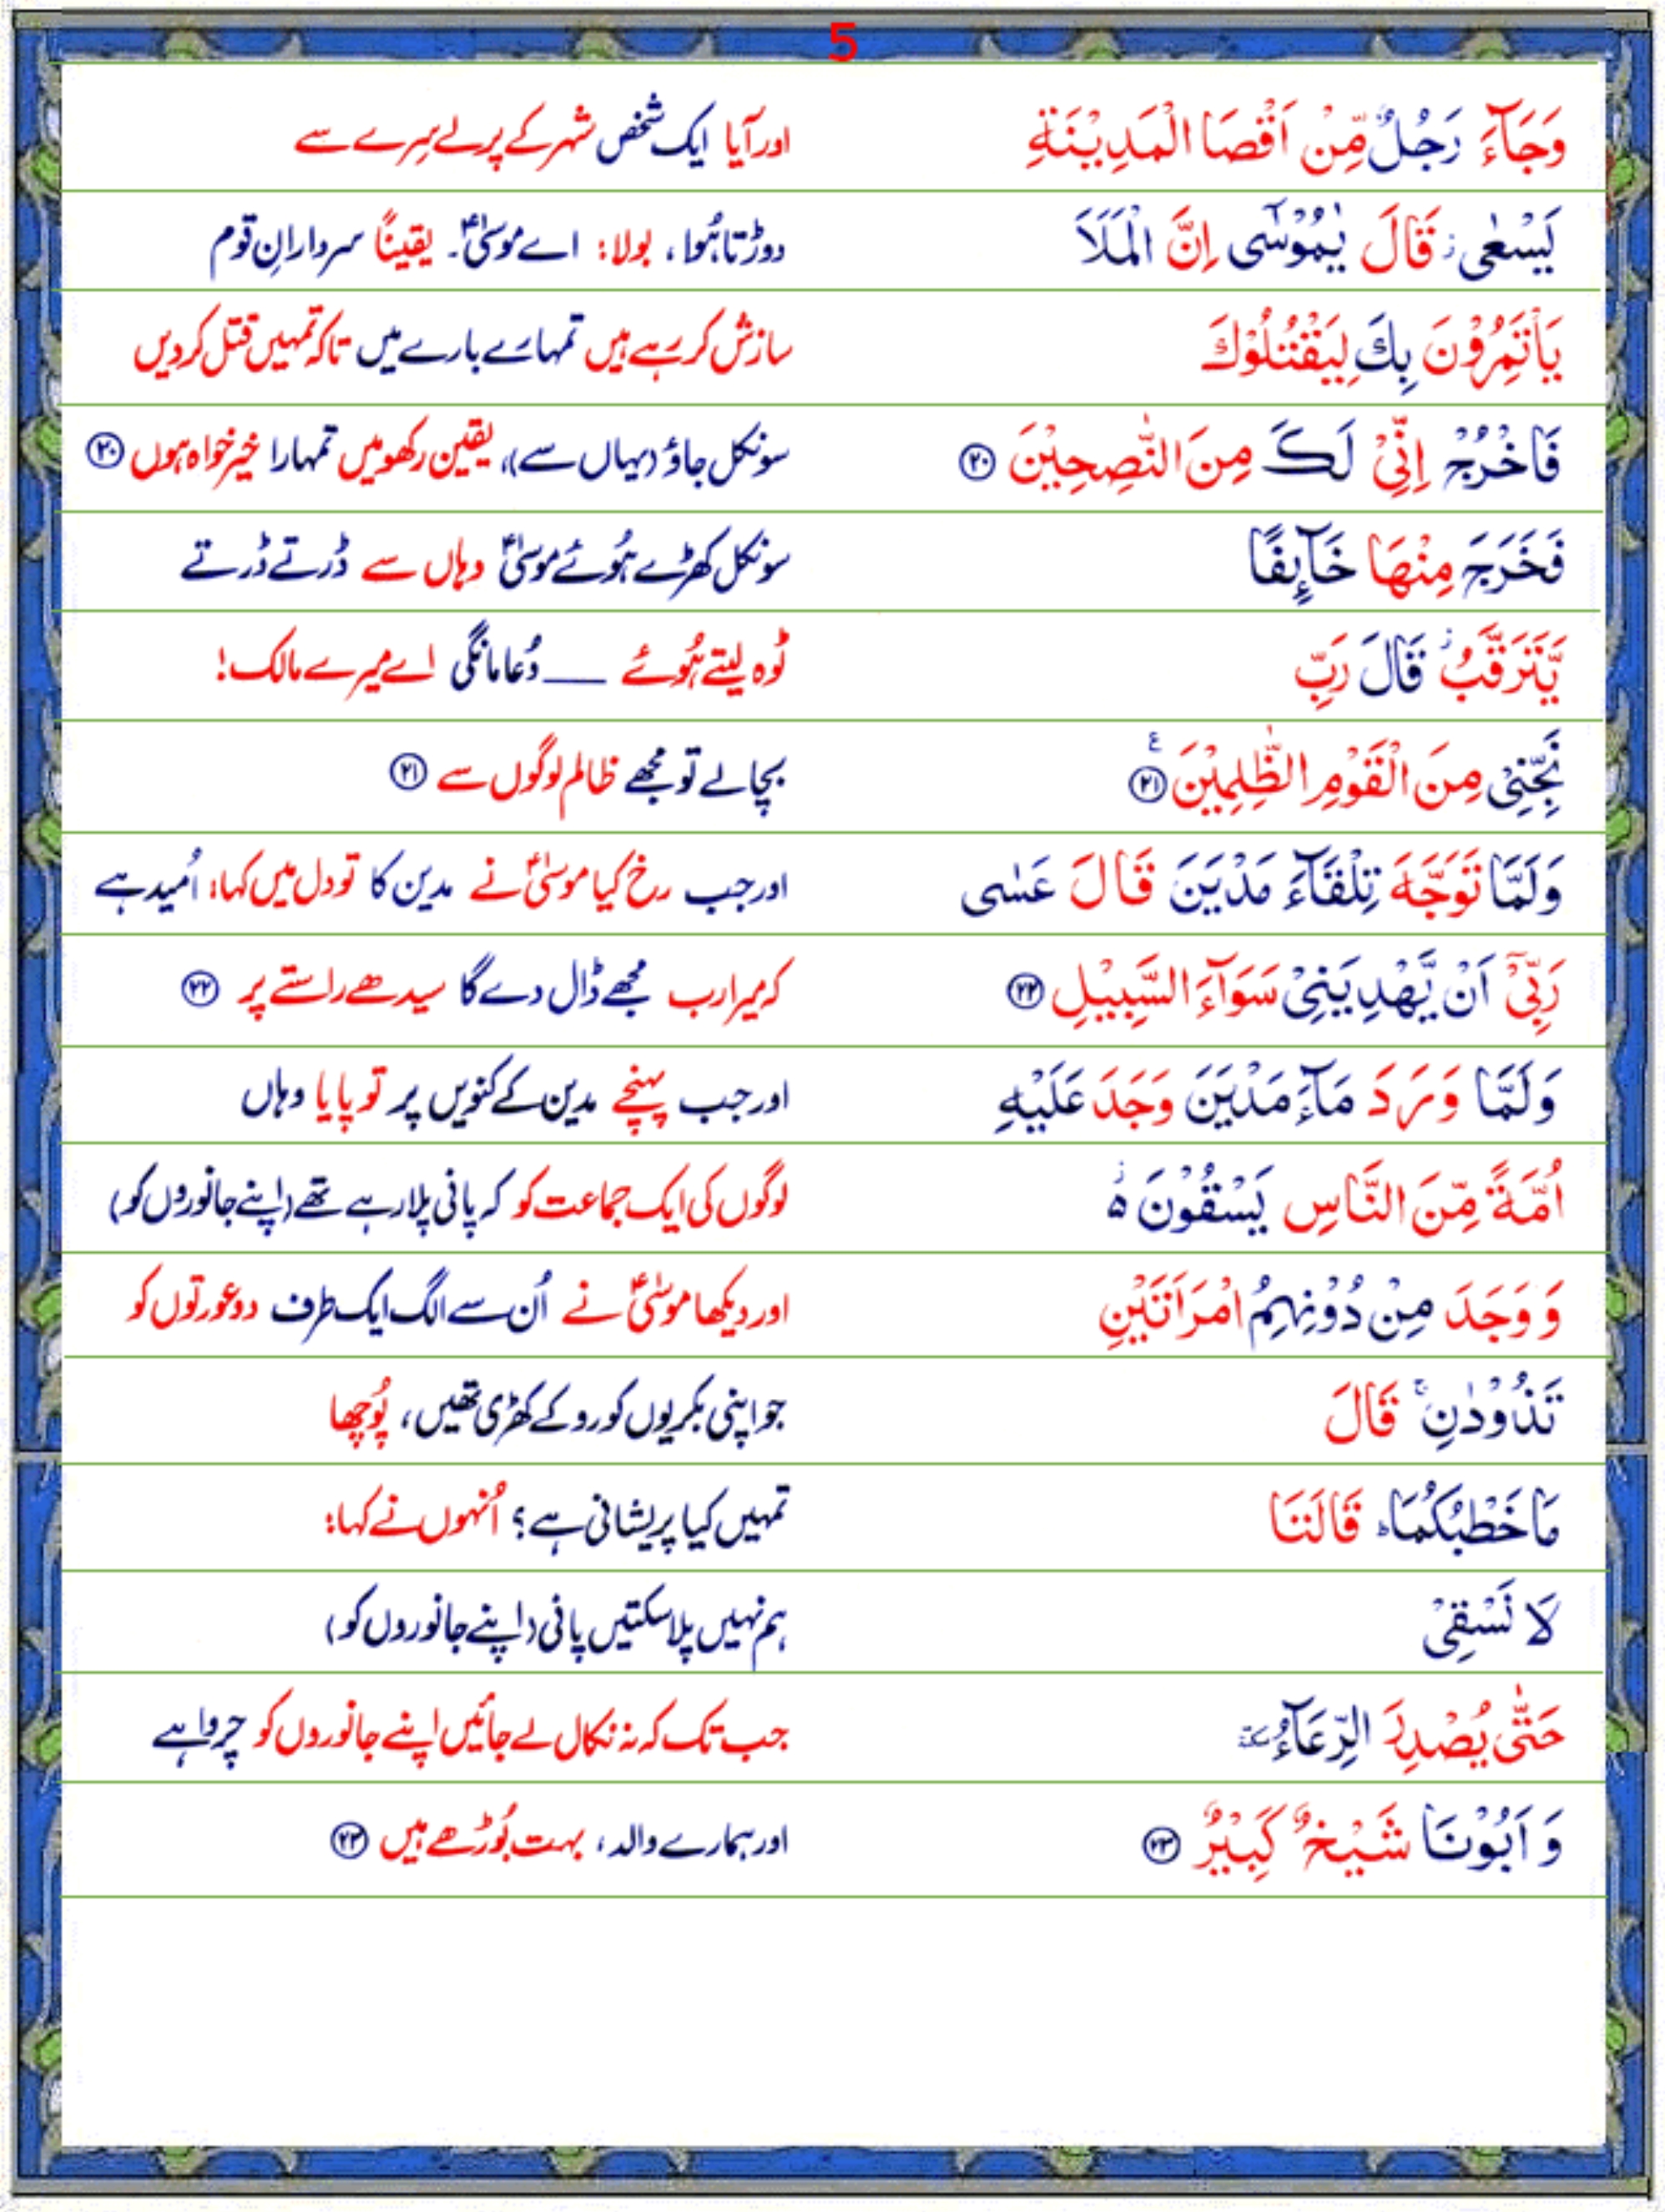 5
وَجَآءَ رَجُلٌ مِّنْ اَقْصَا الْمَدِيْنَةِ اور آیا ایک شخص شہر کے پرلے سِرے سے
يَسْعٰى ز قَالَ يٰمُوْسٰٓى اِنَّ الْمَلَاَ دوڑتا ہُوا، بولا: اے موسیٰؑ۔ یقیناً سردارانِ قوم
يَاْتَمِرُوْنَ بِكَ لِيَقْتُلُوْكَ سازش کر رہے ہیں تمہارے بارے میں تاکہ تمہیں قتل کردیں
فَاخْرُجْ اِنِّىْ لَكَ مِنَ النّٰصِحِيْنَ ۝۲۰ سو نکل جاؤ (یہاں سے)، یقین رکھو میں تمہارا خیر خواہ ہوں ۝۲۰
فَخَرَجَ مِنْهَا خَآئِفًا سو نکل کھڑے ہُوئے موسیٰؑ وہاں سے ڈرتے ڈرتے
يَّتَرَقَّبُ ز قَالَ رَبِّ ٹوہ لیتے ہُوئے ___ دُعا مانگی اے میرے مالک!
نَجِّنِىْ مِنَ الْقَوْمِ الظّٰلِمِيْنَ ۝۲۱ ع بچالے تو مجھے ظالم لوگوں سے ۝۲۱
وَلَمَّا تَوَجَّهَ تِلْقَآءَ مَدْيَنَ قَالَ عَسٰى اور جب رخ کیا موسیٰؑ نے مدین کا تو دل میں کہا: اُمید ہے
رَبِّىْٓ اَنْ يَّهْدِيَنِىْ سَوَآءَ السَّبِيْلِ ۝۲۲ کہ میرا رب مجھے ڈال دے گا سیدھے راستے پر ۝۲۲
وَلَمَّا وَرَدَ مَآءَ مَدْيَنَ وَجَدَ عَلَيْهِ اور جب پہنچے مدین کے کنویں پر تو پایا وہاں
اُمَّةً مِّنَ النَّاسِ يَسْقُوْنَ ۵ ز لوگوں کی ایک جماعت کو کہ پانی پلا رہے تھے (اپنے جانوروں کو)
وَوَجَدَ مِنْ دُوْنِهِمُ امْرَاَتَيْنِ اور دیکھا موسیٰؑ نے اُن سے الگ ایک طرف دو عورتوں کو
تَذُوْدٰنِ ج قَالَ جو اپنی بکریوں کو روکے کھڑی تھیں، پُوچھا
مَا خَطْبُكُمَا ط قَالَتَا تمہیں کیا پریشانی ہے؟ اُنہوں نے کہا:
لَا نَسْقِىْ ہم نہیں پلا سکتیں پانی (اپنے جانوروں کو)
حَتّٰى يُصْدِرَ الرِّعَآءُ سكتة جب تک کہ نہ نکال لے جائیں اپنے جانوروں کو چرواہے
وَاَبُوْنَا شَيْخٌ كَبِيْرٌ ۝۲۳ اور ہمارے والد، بہت بُوڑھے ہیں ۝۲۳